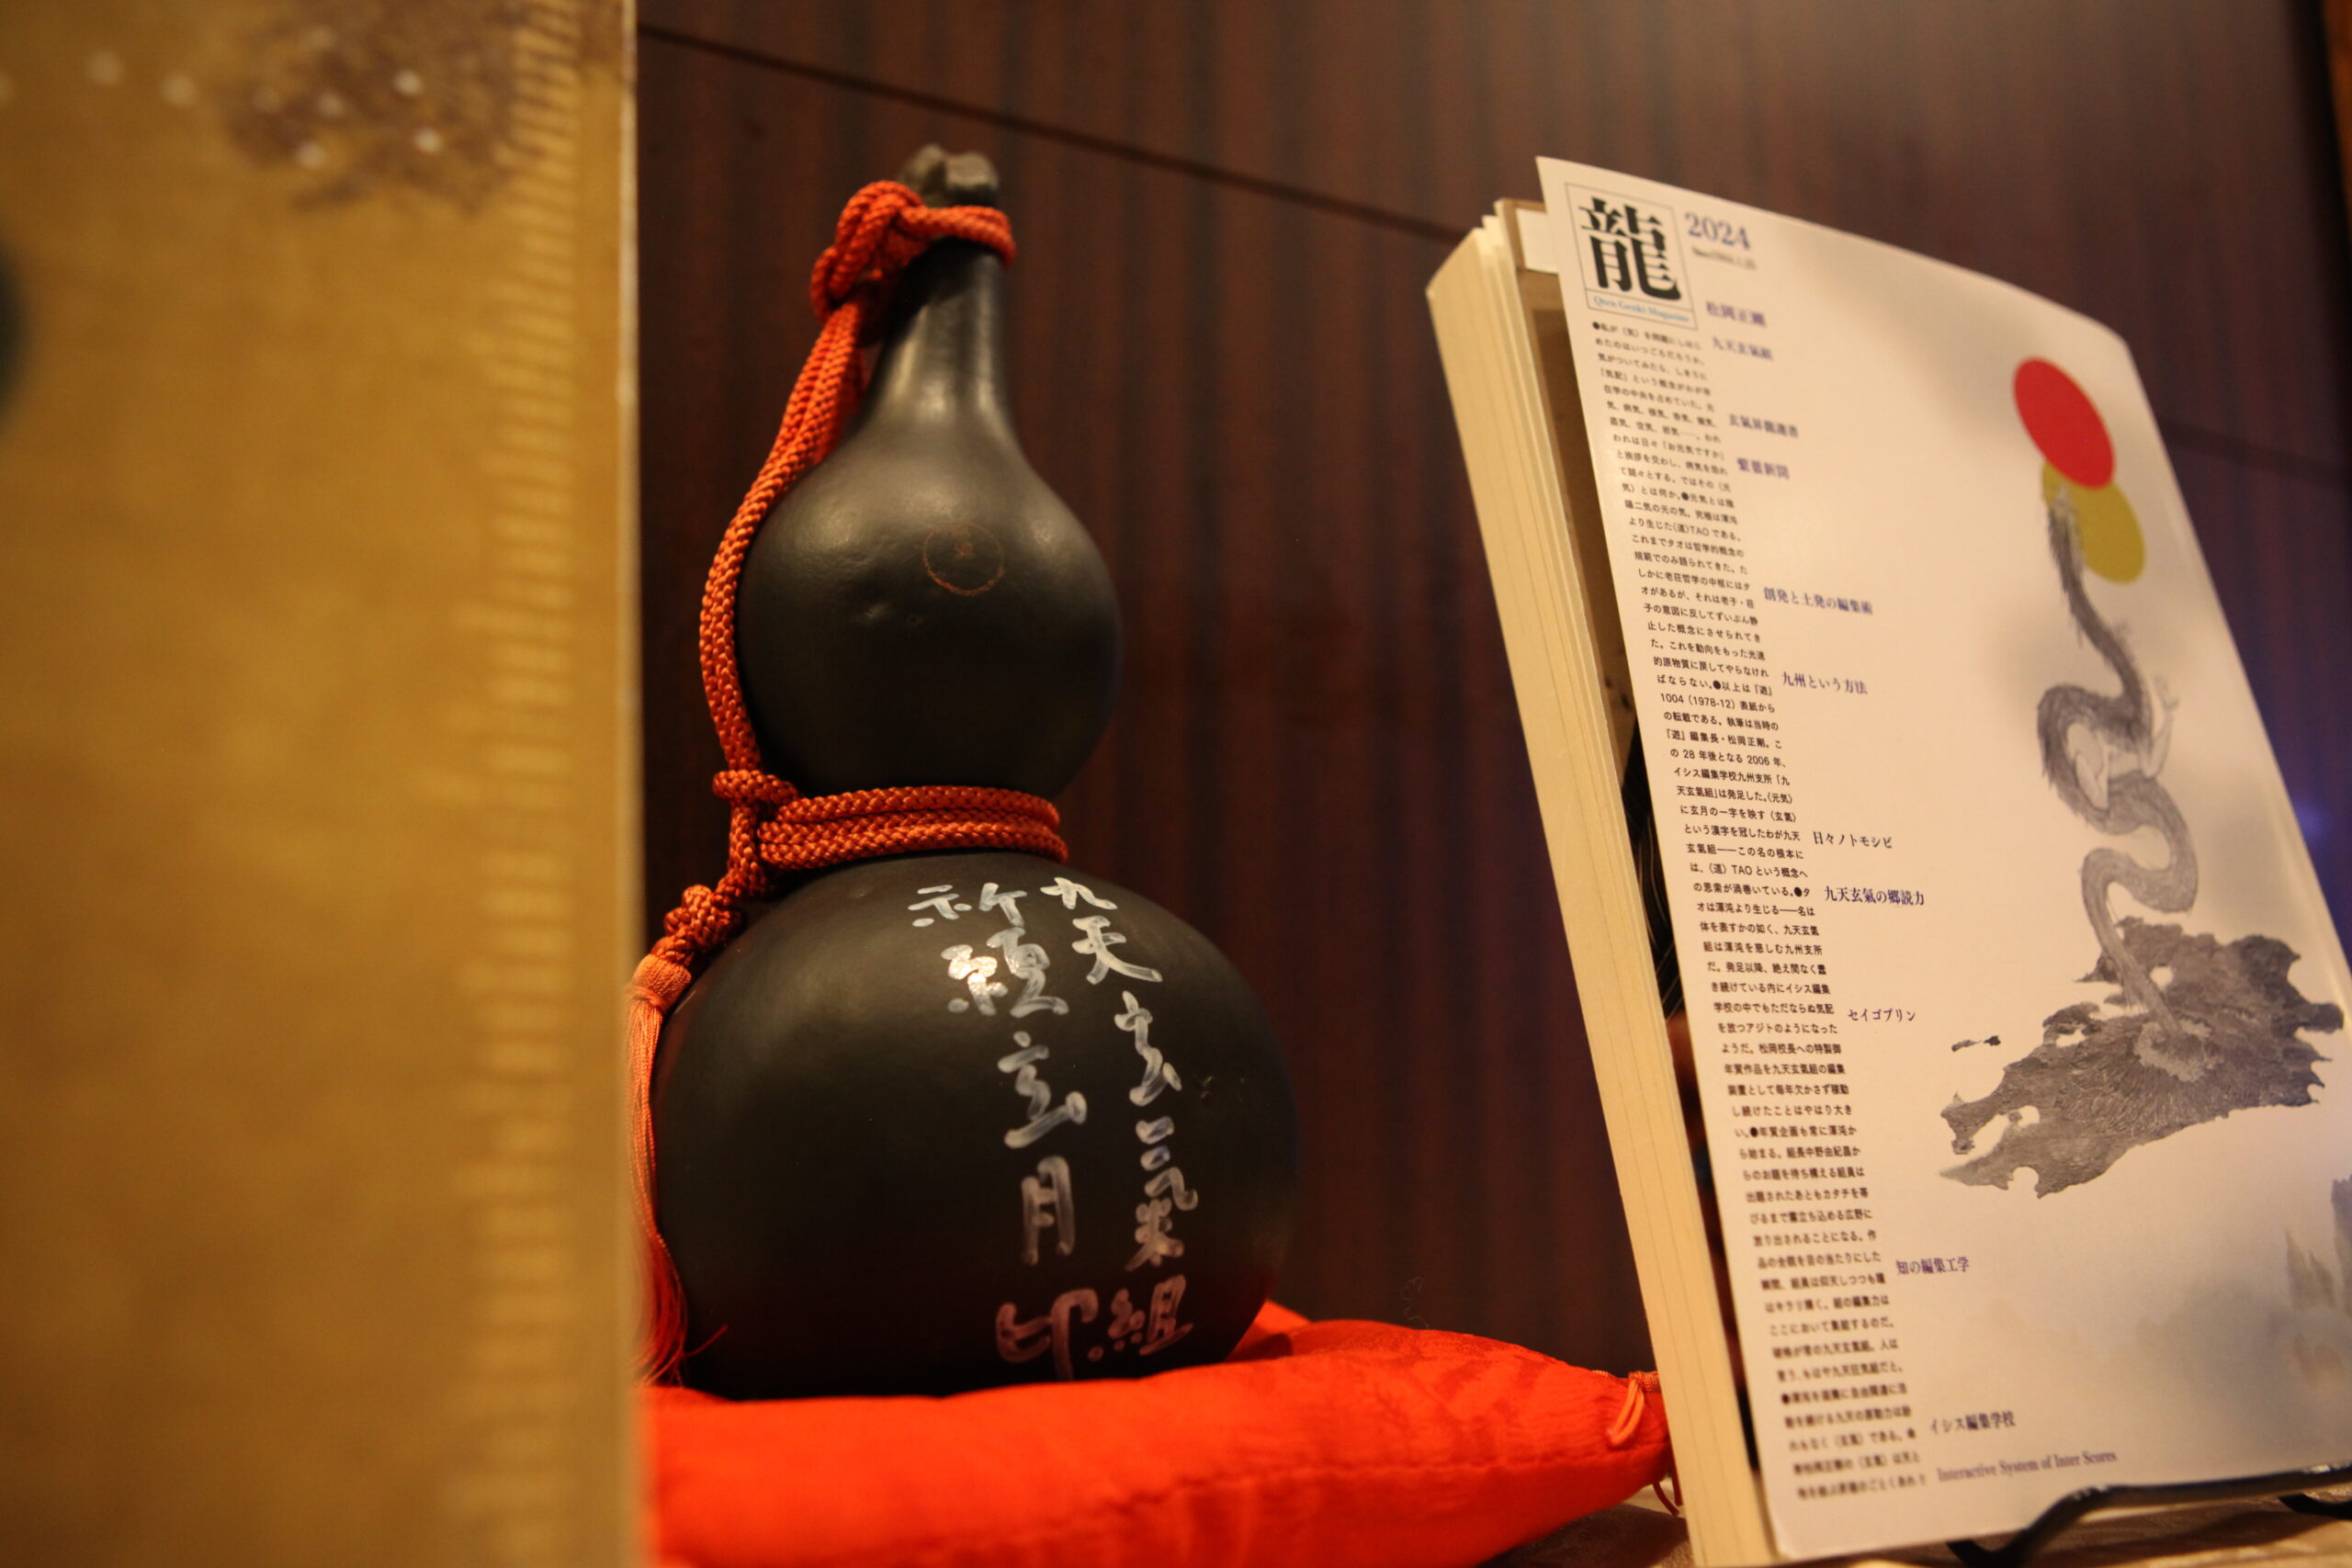 九天玄氣組
玄月
龍
2024
Qten Genki Magazine
松岡正剛
九天玄氣組
玄氣昇龍連書
紫薇新聞
創発と土発の編集術
九州という方法
日々ノトモシビ
九天玄氣の郷読力
セイゴプリン
知の編集工学
イシス編集学校
Interactive System of Inter Scores
●私が〈気〉を問題にしはじ
めたのはいつごろだろうか。
気がついてみたら、しきりに
「気配」という概念がわが存
在学の中央を占めていた。元
われは日々「お元気ですか」
と挨拶を交わし、病気を恐れ
て闘々とする。ではその〈元
気〉とは何か。●元気とは陰
陽二気の元の気。究極は渾沌
より生じた〈道〉TAOである。
これまでタオは哲学的概念の
規範でのみ語られてきた。た
しかに老荘哲学の中枢にはタ
オがあるが、それは老子・荘
子の意図に反してずいぶん静
止した概念にさせられてき
た。これを動向をもった光速
的原物質に戻してやらなけれ
ばならない。●以上は『遊』
1004（1978-12）表紙から
の転載である。執筆は当時の
『遊』編集長・松岡正剛。こ
の 28 年後となる 2006 年、
イシス編集学校九州支所「九
天玄氣組」は発足した。〈元気〉
に玄月の一字を映す〈玄氣〉
という漢字を冠したわが九天
玄氣組——この名の根本に
は、〈道〉TAO という概念へ
の思索が渦巻いている。●タ
オは渾沌より生じる——名は
体を表すかの如く、九天玄氣
組は渾沌を慈しむ九州支所
だ。発足以降、絶え間なく蠢
き続けている内にイシス編集
学校の中でもただならぬ気配
を放つアジトのようになった
ようだ。松岡校長への特製御
年賀作品を九天玄氣組の編集
装置として毎年欠かさず稼動
し続けたことはやはり大き
い。●年賀企画も常に渾沌か
ら始まる。組長中野由紀昌か
らのお題を待ち構える組員は
出題されたあともカタチを帯
びるまで霧立ち込める広野に
放り出されることになる。作
品の全貌を目の当たりにした
瞬間、組員は仰天しつつも瞳
はキラリ輝く。組の編集力は
ここにおいて集結するのだ。
破格が常の九天玄氣組。人は
言う、もはや九天狂気組だと。